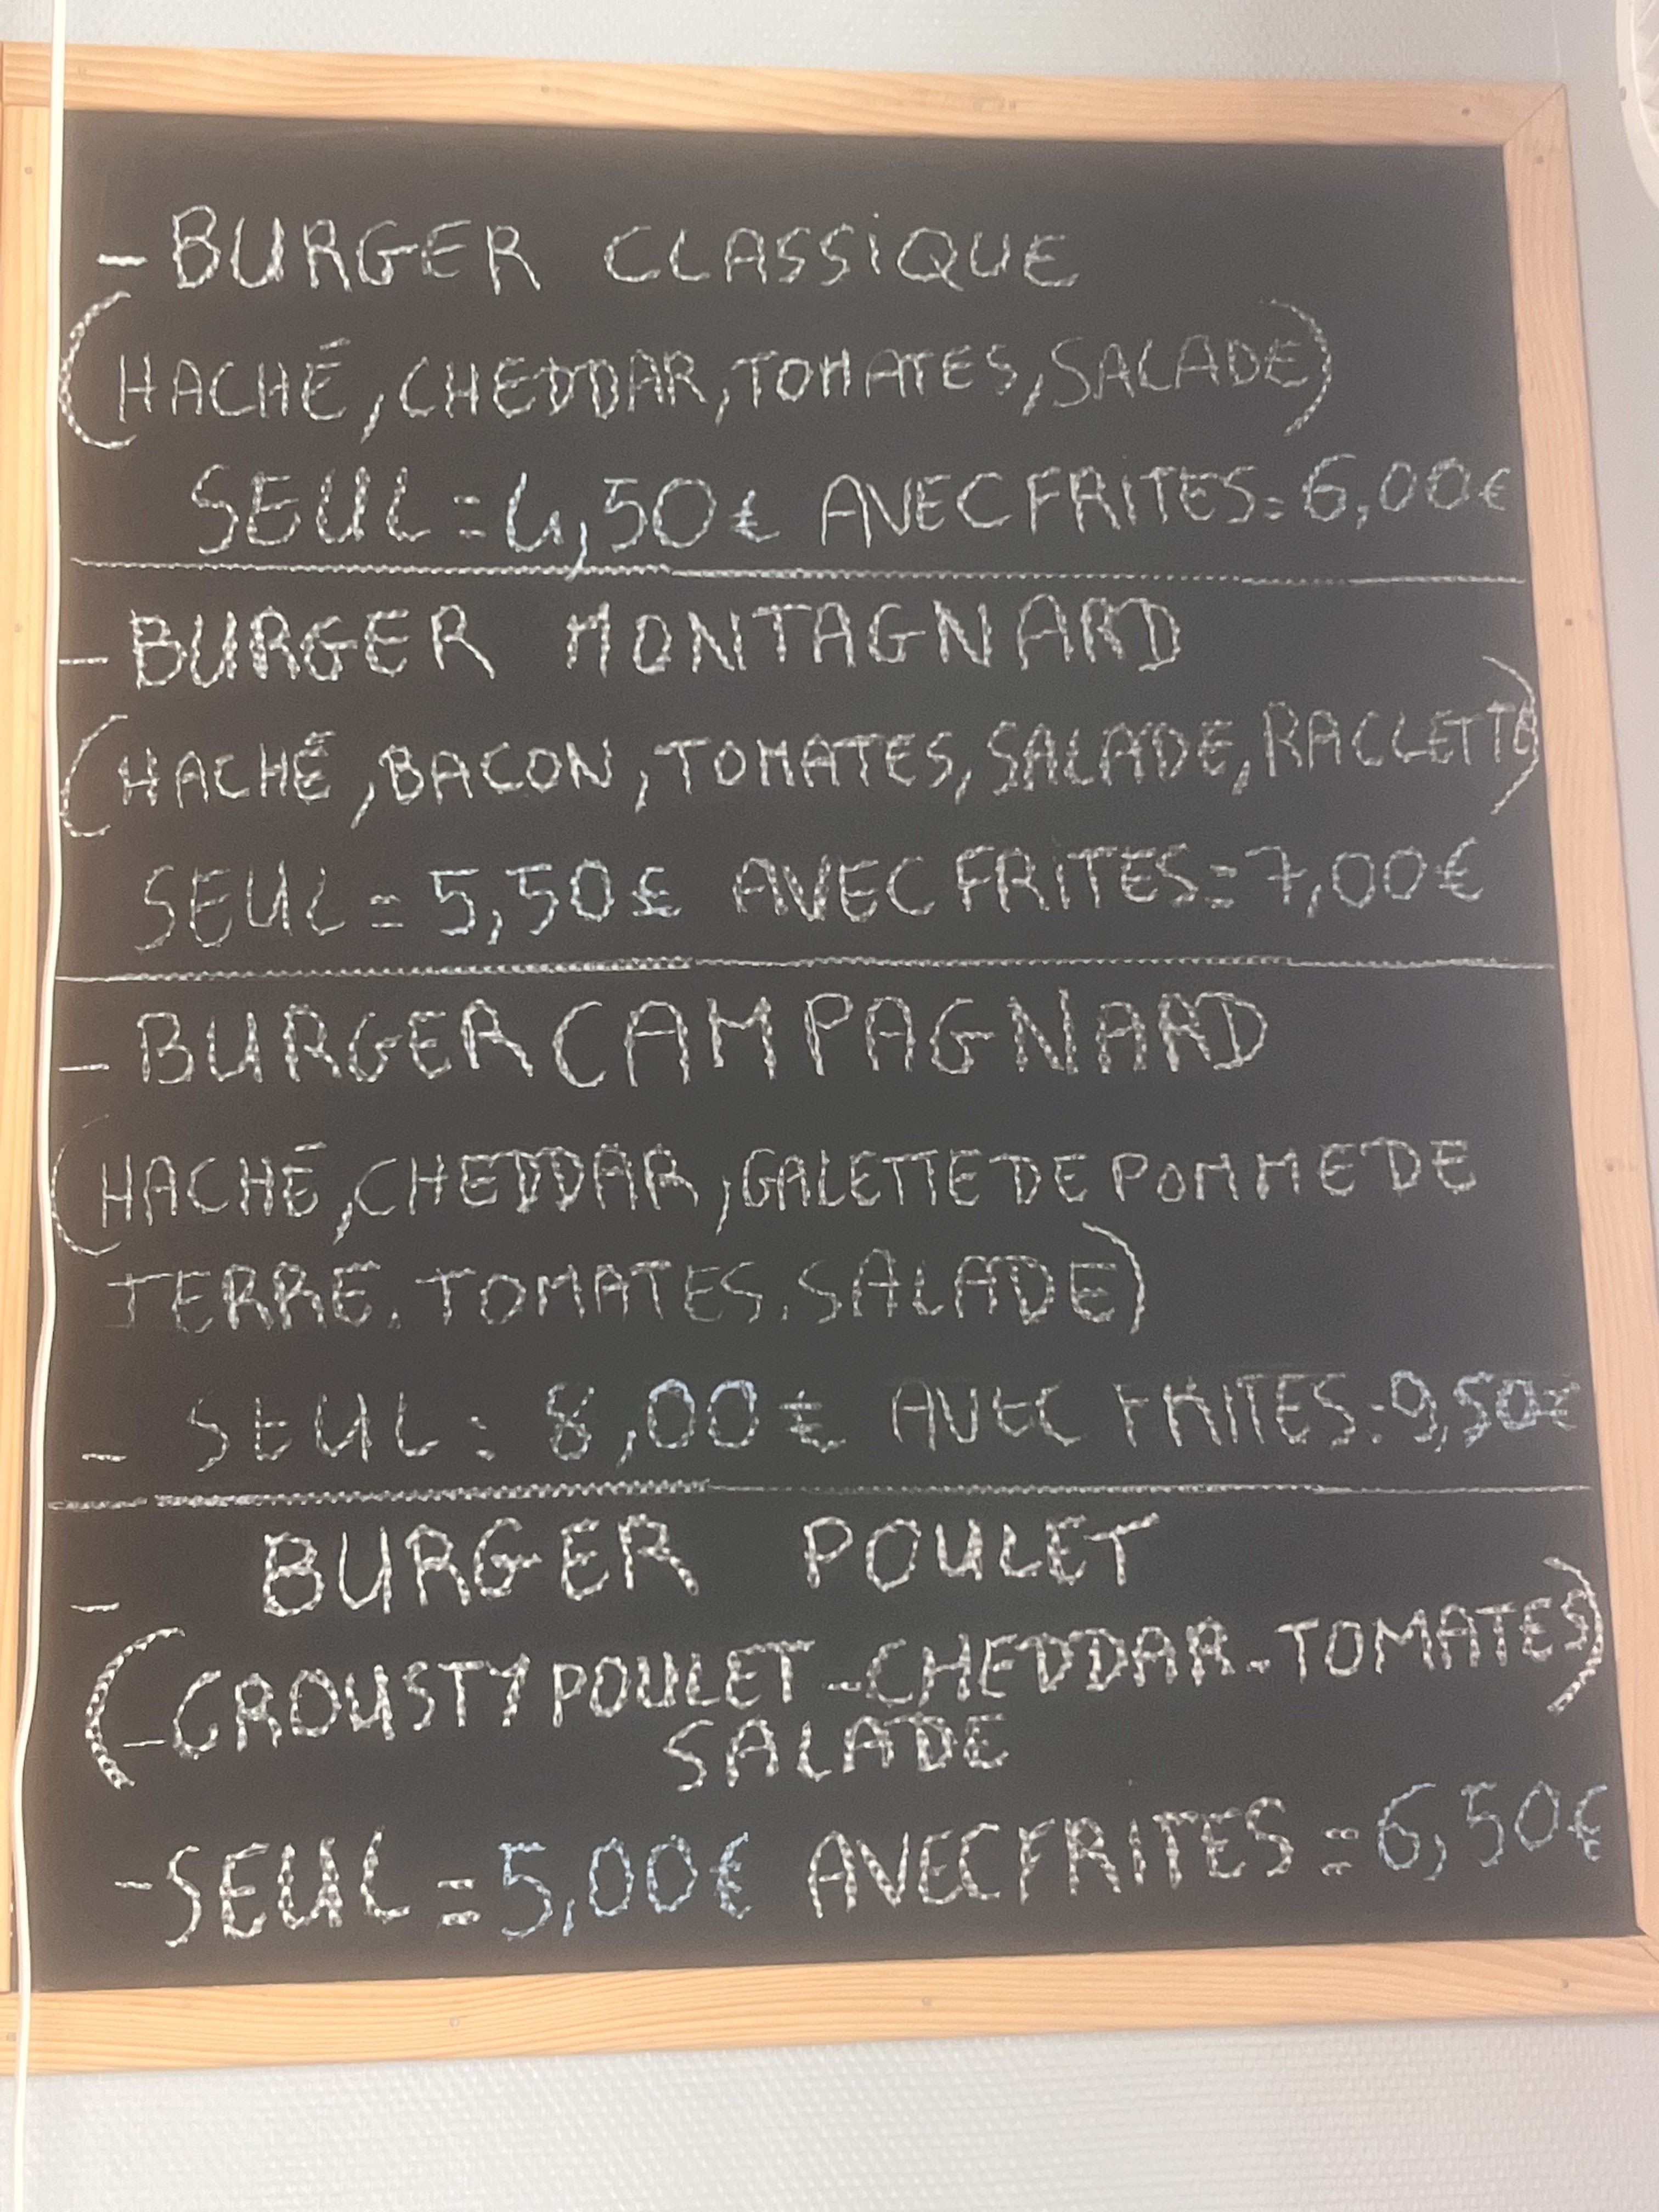 - BURGER CLASSiQUE
(HACHÉ, CHEDDAR, TOMATES, SALADE)
SEUL = 4,50€ AVEC FRITES = 6,00€
- BURGER MONTAGNARD
(HACHÉ, BACON, TOMATES, SALADE, RACLETTE)
SEUL = 5,50€ AVEC FRiTES = 7,00€
- BURGER CAMPAGNARD
(HACHÉ, CHEDDAR, GALETTE DE POMME DE
TERRE. TOMATES. SALADE)
- SEUL : 8,00€ AVEC FRITES : 9,50€
- BURGER POULET
(- CROUSTY POULET - CHEDDAR - TOMATES)
SALADE
- SEUL = 5,00€ AVEC FRITES = 6,50€